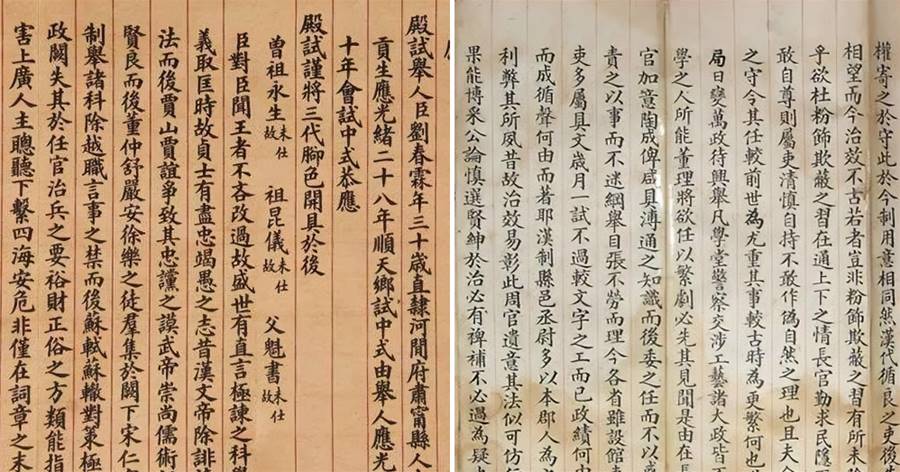 殿試舉人臣劉春霖年三十歲直隸河間府肅甯縣人
貢生應光緒二十八年順天鄉試中式由舉人應光
十年會試中式恭應
殿試謹將三代腳色開具於後
曾祖永生未仕故 祖昆儀未仕故 父魁書未仕故
臣對臣聞王者不吝改過故盛世有直言極諫之科
義取匡時故貞士有盡忠竭愚之志昔漢文帝除誹
法而後賈山賈誼爭致其忠讜之謨武帝崇尚儒術
賢良而後董仲舒嚴安徐樂之徒羣集於闕下宋仁
制舉諸科除越職言事之禁而後蘇軾蘇轍對策極
政闕失其於任官治兵之要裕財正俗之方類能指
害上廣人主聰聽下繫四海安危非僅在詞章之末
權寄之於守此於今制用意相同然漢代循良之吏後
相望而今治效不古若者豈非粉飾欺蔽之習有所未
乎欲杜粉飾欺蔽之習在通上下之情長官勤求民隱
敢自尊則屬吏清慎自持不敢作偽自然之理也且夫
之守令其任較前世為尤重其事較古時為更繁何也
局日變萬政待興舉凡學堂警察交涉工藝諸大政皆
學之人所能董理將欲任以繁劇必先其見聞是在
官加意陶成俾居具溥通之知識而後委之任而不以
責之以事而不迷綱舉目張不勞而理今各省雖設館
吏多屬具文歲月一試不過較文字之工而已政績何由
而成循聲何由而著耶漢制縣邑丞尉多以本郡人為
利弊其所夙昔故治效易彰此周官遺意其法似可仿
果能博采公論慎選賢紳於治必有裨補不必過為疑